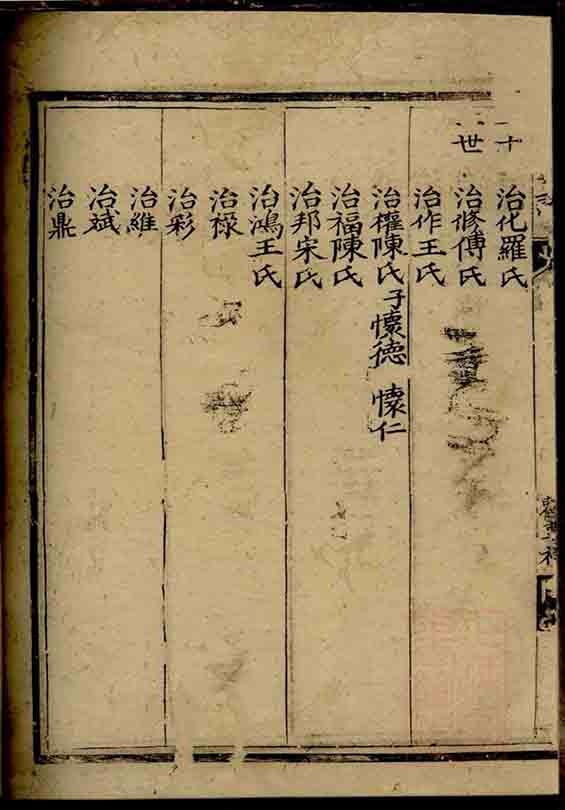 十
世
治化羅氏
治修傅氏
治作王氏
治權陳氏子懷德 懷仁
治福陳氏
治邦宋氏
治鴻王氏
治祿
治彩
治維
治斌
治鼎